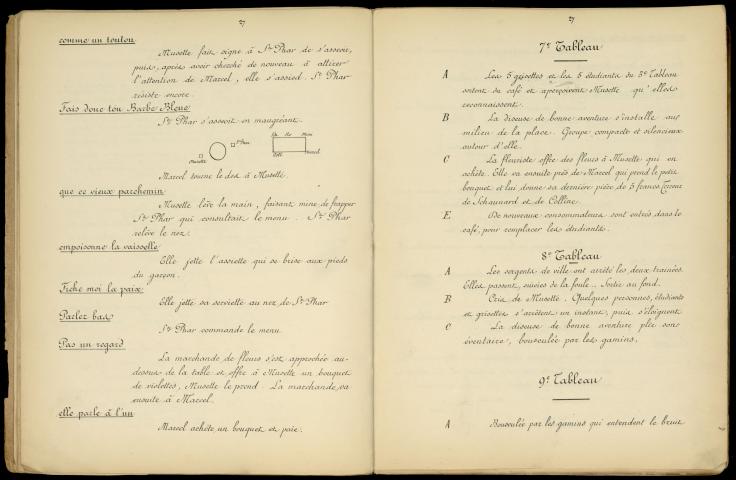 27
comme un toutou
Musette fait signe à St Phar de s'asseoir,
puis, après avoir cherché de nouveau à attirer
l'attention de Marcel, elle s'assied. St Phar
résiste encore.
Fais donc ton Barbe Bleue
St Phar s'asseoit en maugréant.
St Phar
Musette
Sch. Ro. Mimi
Coll. Marcel
Marcel tourne le dos à Musette.
que ce vieux parchemin
Musette lève la main, faisant mine de frapper
St Phar qui consultait le menu. St Phar
relève le nez.
empoisonne la vaisselle
Elle jette l'assiette qui se brise aux pieds
du garçon.
Fiche moi la paix
Elle jette sa serviette au nez de St Phar
Parlez bas
St Phar commande le menu.
Pas un regard
La marchande de fleurs s'est approchée au-
dessus de la table et offre à Musette un bouquet
de violettes, Musette le prend. La marchande va
ensuite à Marcel.
elle parle à l'un
Marcel achète un bouquet et paie.
27
7e Tableau
A Les 5 grisettes et les 5 étudiants du 5e Tableau
sortent du café et aperçoivent Musette qu'elles
reconnaissent.
B La diseuse de bonne aventure s'installe au
milieu de la place. Groupe compacte et silencieux
autour d'elle.
C La fleuriste offre des fleurs à Musette qui en
achète. Elle va ensuite près de Marcel qui prend le petit
bouquet et lui donne sa dernière pièce de 5 francs
de Schaunard et de Colline.
E De nouveaux consommateurs sont entrés dans le
café, pour remplacer les étudiants.
8e Tableau
A Les sergents de ville ont arrêté les deux
Elles passent, suivies de la foule. Sortie au fond.
B Cris de Musette. Quelques personnes, étudiants
et grisettes s'arrêtent un instant, puis s'éloignent.
C La diseuse de bonne aventure plie son
éventaire, bousculée par les gamins.
9e Tableau
A Bousculée par les gamins qui entendent le bruit